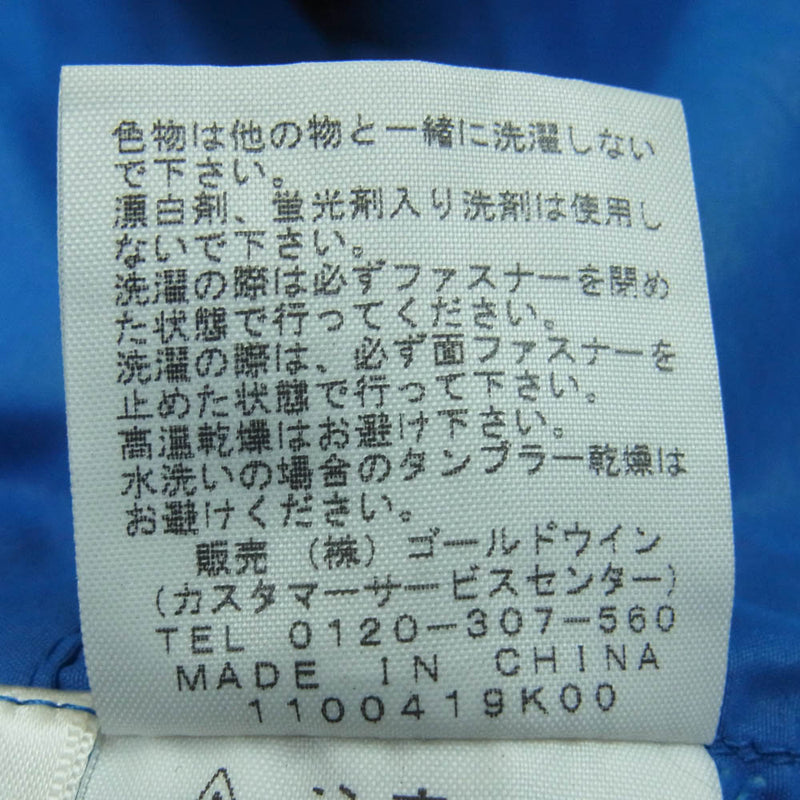 色物は他の物と一緒に洗濯しない
で下さい。
漂白剤、蛍光剤入り洗剤は使用し
ないで下さい。
洗濯の際は必ずファスナーを閉め
た状態で行ってください。
洗濯の際は、必ず面ファスナーを
止めた状態で行って下さい。
高温乾燥はお避け下さい。
水洗いの場合のタンブラー乾燥は
お避けください。
販売 (株) ゴールドウイン
(カスタマーサービスセンター)
TEL 0120-307-560
MADE IN CHINA
1100419K00